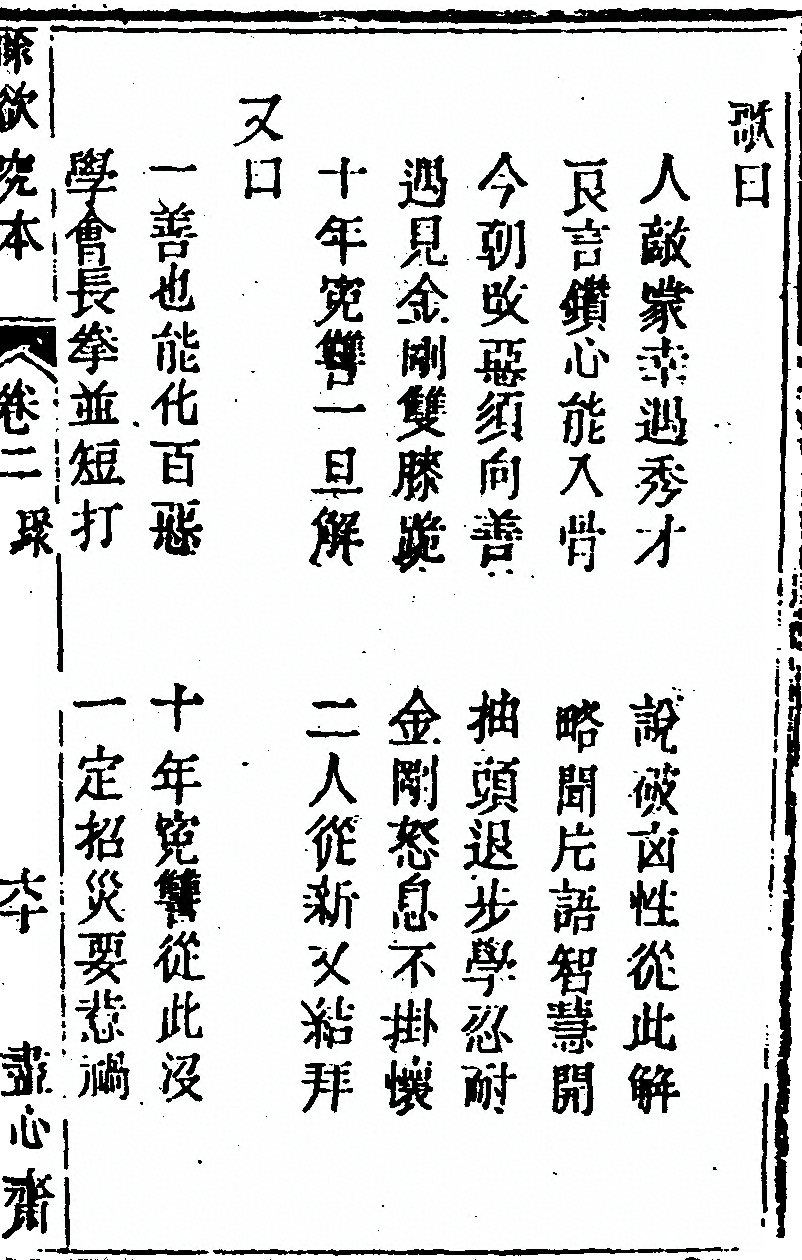 歌曰
人敵蒙幸遇秀才　說破凶性從此解
良言鑽心能入骨　略聞片語智慧開
今朝改惡須向善　抽頭退步學忍耐
遇見金剛雙膝跪　金剛怒息不掛懷
十年寃讐一旦解　二人從新又結拜
又曰
一善也能化百惡　十年寃讐從此沒
學會長拳並短打　一定招災要惹禍
欲究本　卷二　六十　盡心齋